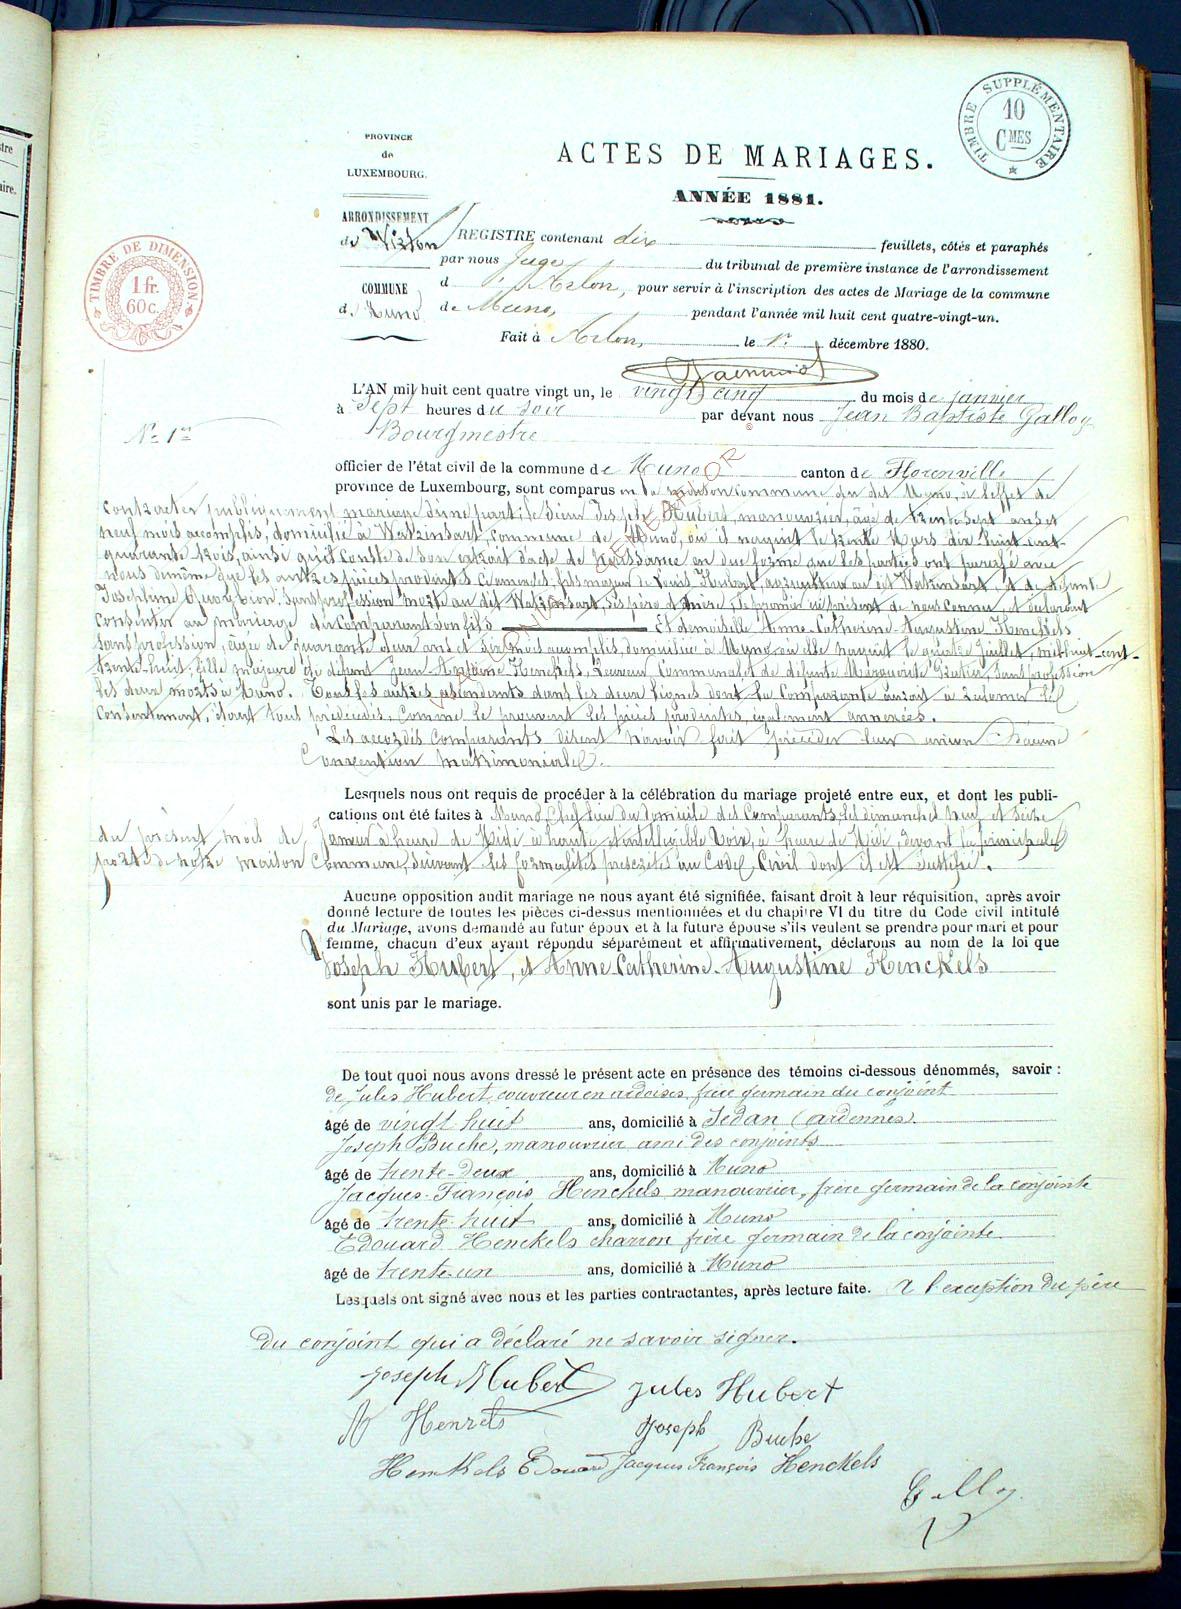 PROVINCE
de
LUXEMBOURG.
ARRONDISSEMENT
de Virton
COMMUNE
de Muno
TIMBRE DE DIMENSION
1 fr.
60 c.
TIMBRE SUPPLÉMENTAIRE
10
CMES
ACTES DE MARIAGES.
ANNÉE 1881.
REGISTRE contenant dix feuillets, côtés et paraphés
par nous Juge du tribunal de première instance de l'arrondissement
d'Arlon, pour servir à l'inscription des actes de Mariage de la commune
de Muno, pendant l'année mil huit cent quatre-vingt-un.
Fait à Arlon, le 1er décembre 1880.
N° 1er
L'AN mil huit cent quatre vingt un, le vingt cinq du mois de janvier
à sept heures du soir par devant nous Jean Baptiste Galloy
Bourgmestre
officier de l'état civil de la commune de Muno canton de Florenville
province de Luxembourg, sont comparus en la maison commune du dit Muno, à l'effet de
contracter publiquement mariage d'une part le sieur Joseph Hubert, manouvrier, âgé de trente sept ans et
neuf mois accomplis, domicilié à Watrinsart, commune de Muno, où il naquit le trente Mars dix huit cent
quarante trois, ainsi qu'il conste de son extrait d'acte de Naissance en due forme que les parties ont parafé avec
nous de même que les autres pièces produites et annexées, fils majeur de Louis Hubert, au dit Watrinsart et de défunte
Joséphine sans profession morte au dit Watrinsart, ses père et mère, le premier ici présent de nous connu, et déclarant
consentir au mariage du comparant son fils Et demoiselle Anne-Catherine-Augustine Henckels
sans profession, âgée de quarante deux ans et six mois accomplis, domiciliée à Muno où elle naquit le quatre Juillet, mil huit-cent-
trente-huit, fille majeure de défunt Jean-Antoine Henckels, communal et de défunte Marguerite sans profession
les deux morts à Muno. Tous les autres ascendants dans les deux lignes dont la comparante aurait à
consentement, étant tous prédécédés, comme le prouvent les pièces produites, également annexées.
Les accordés comparants disent n'avoir fait précéder leur union d'aucune
Convention matrimoniale.
Lesquels nous ont requis de procéder à la célébration du mariage projeté entre eux, et dont les publi-
cations ont été faites à Muno, Chef lieu du domicile des Comparants, les dimanches neuf et seize
du présent mois de Janvier à heure de Midi à haute et intelligible voix, à heure de Midi, devant la principale
porte de notre maison Commune, suivant les formalités prescrites au Code Civil dont il est justifié.
Aucune opposition audit mariage ne nous ayant été signifiée, faisant droit à leur réquisition, après avoir
donné lecture de toutes les pièces ci-dessus mentionnées et du chapitre VI du titre du Code civil intitulé
du Mariage, avons demandé au futur époux et à la future épouse s'ils veulent se prendre pour mari et pour
femme, chacun d'eux ayant répondu séparément et affirmativement, déclarons au nom de la loi que
Joseph Hubert, et Anne-Catherine-Augustine Henckels
sont unis par le mariage.
De tout quoi nous avons dressé le présent acte en présence des témoins ci-dessous dénommés, savoir :
de Jules Hubert, couvreur en ardoises, frère germain du conjoint
âgé de vingt huit ans, domicilié à Sedan (ardennes).
Joseph Buche, manouvrier ami des conjoints
âgé de trente-deux ans, domicilié à Muno
Jacques-François Henckels manouvrier, frère germain de la conjointe
âgé de trente-huit ans, domicilié à Muno
Edouard Henckels charron frère germain de la conjointe
âgé de trente-un ans, domicilié à Muno
Lesquels ont signé avec nous et les parties contractantes, après lecture faite. à l'exception du père
du conjoint qui a déclaré ne savoir signer.
Joseph Hubert Jules Hubert
Joseph Buche
Henckels Edouard Jacques François Henckels
Galloy